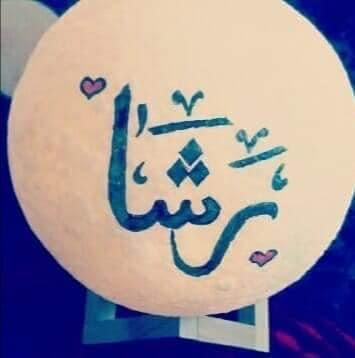 رشا